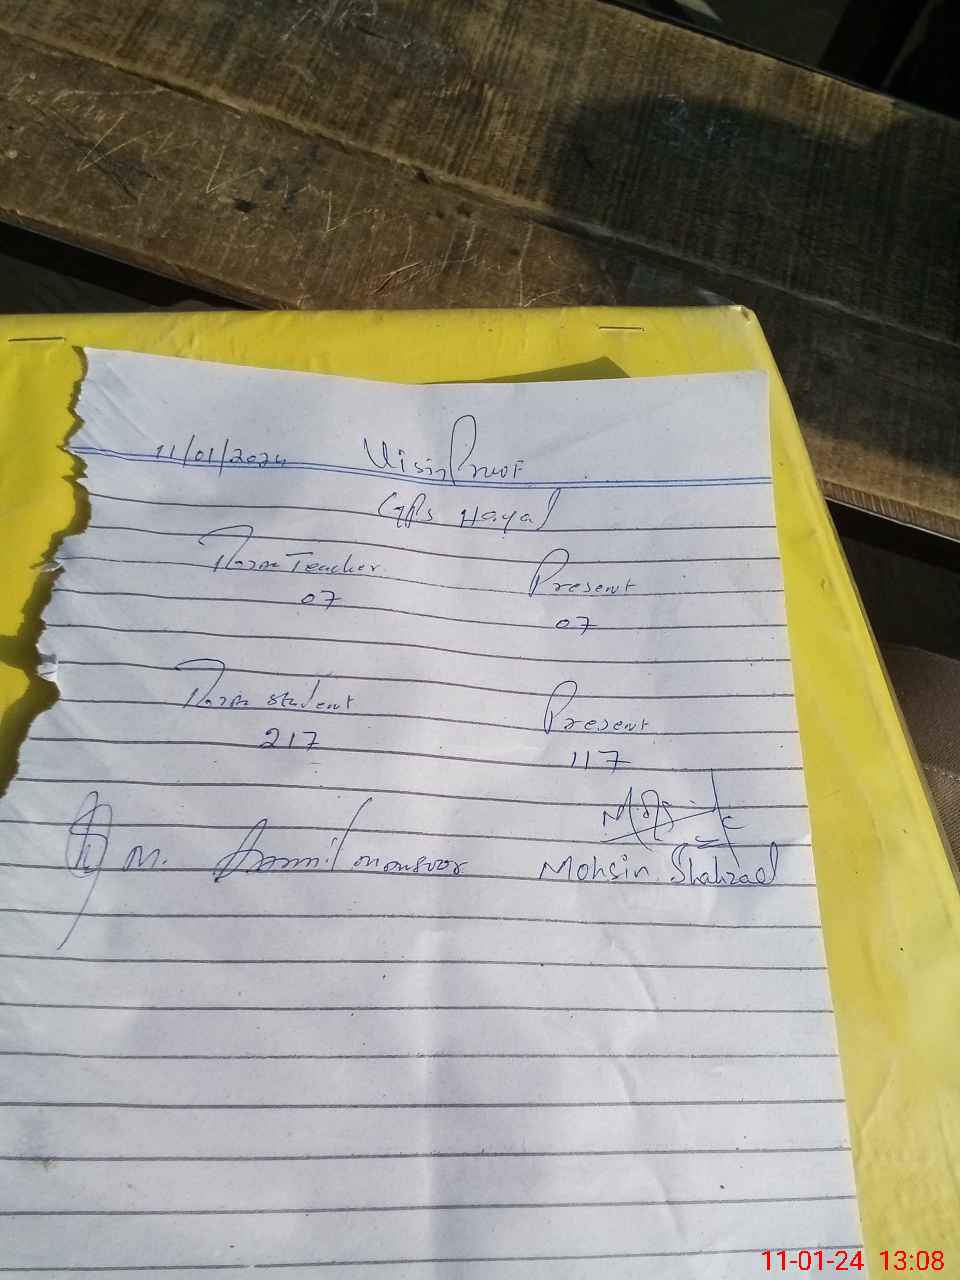 11/01/2024 Visin Proof
GPS Hayal
Teacher
Present
07
07
student
Present
217
117
M. mansoor
Mohsin Shahzad
11-01-24 13:08